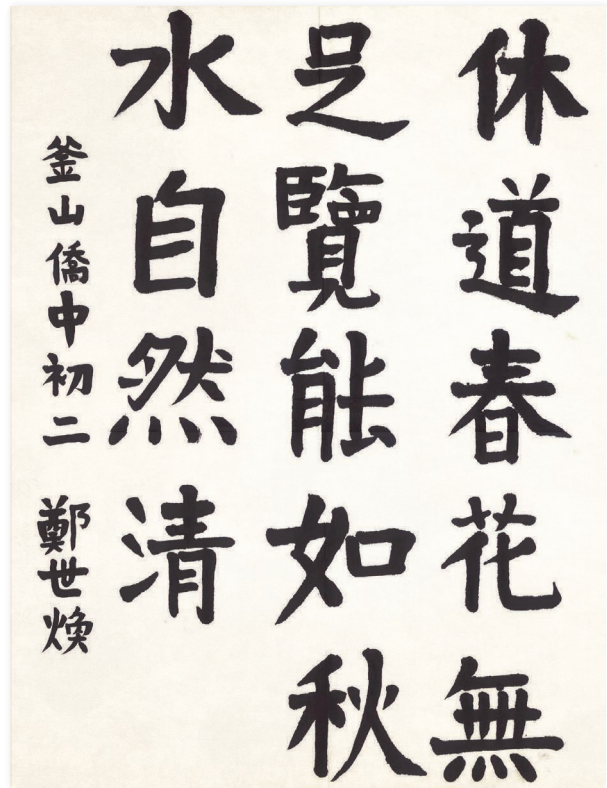 休道春花無
足覽能如秋
水自然清
釜山僑中初二 鄭世煥